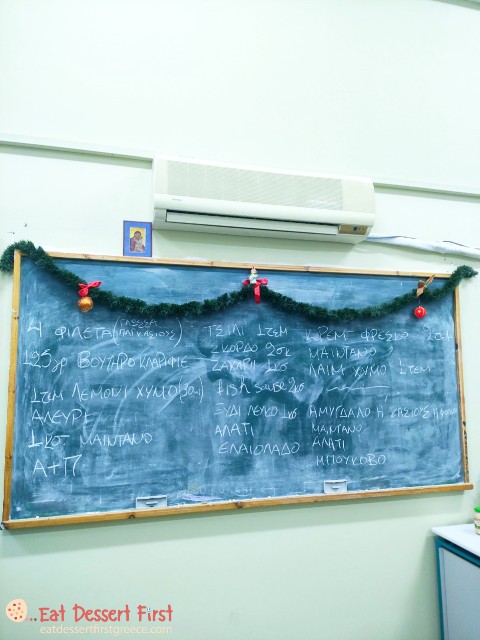 4 ΦΙΛΕΤΑ (ΓΛΩΣΣΑ
125γρ ΒΟΥΤΗΡΟ ΚΛΑΡΙΦΙΕ
1ΤΕΜ ΛΕΜΟΝΙ ΧΥΜΟ (30ml)
ΑΛΕΥΡΙ
1ΚΟΤ ΜΑΙΝΤΑΝΟ
Α+Π
ΤΣΙΛΙ 1ΤΕΜ
ΣΚΟΡΔΟ 2σκ
ΖΑΧΑΡΗ 1κσ
fish sauce 2κσ
ΞΥΔΙ ΛΕΥΚΟ 1κσ
ΑΛΑΤΙ
ΕΛΑΙΟΛΑΔΟ
ΚΡΕΜ ΦΡΕΣΚΟ
ΜΑΙΝΤΑΝΟ
ΛΑΙΜ ΧΥΜΟ 1ΤΕΜ
ΑΜΥΓΔΑΛΟ Ή ΚΑΣΙΟΥΣ
ΜΑΙΝΤΑΝΟ
ΑΛΑΤΙ
ΜΠΟΥΚΟΒΟ
..Eat Dessert First
eatdessertfirstgreece.com